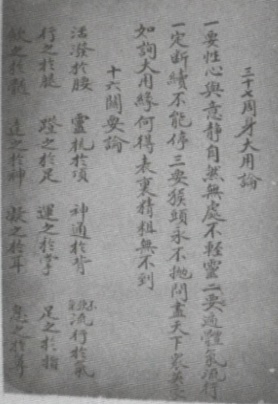 三十七周身大用論
一要性心與意靜自然無處不輕靈二要遍體氣流行
一定断續不能停三要猴頭永不抛問盡天下眾英
如詢大用緣何得表裏精粗無不到
十六關要論
活潑於腰 靈机於項 神通於背 流行於氣
行之於腿 蹬之於足 運之於掌 足之於指
斂之於髓 達之於神 凝之於耳 息之於鼻